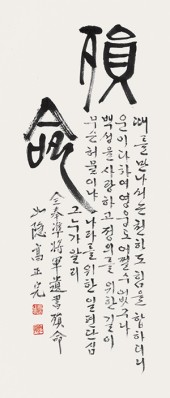 殞
命
때를 만나서는 천하도 힘을 합하더니
운이 다하여 영웅도 어쩔수 없구나
백성을 사랑하고 정의를 위한 길이
무슨 허물이냐 나라를 위한 일편단심
그 누가 알리
全奉準將軍遺書殞命
隱 高正完